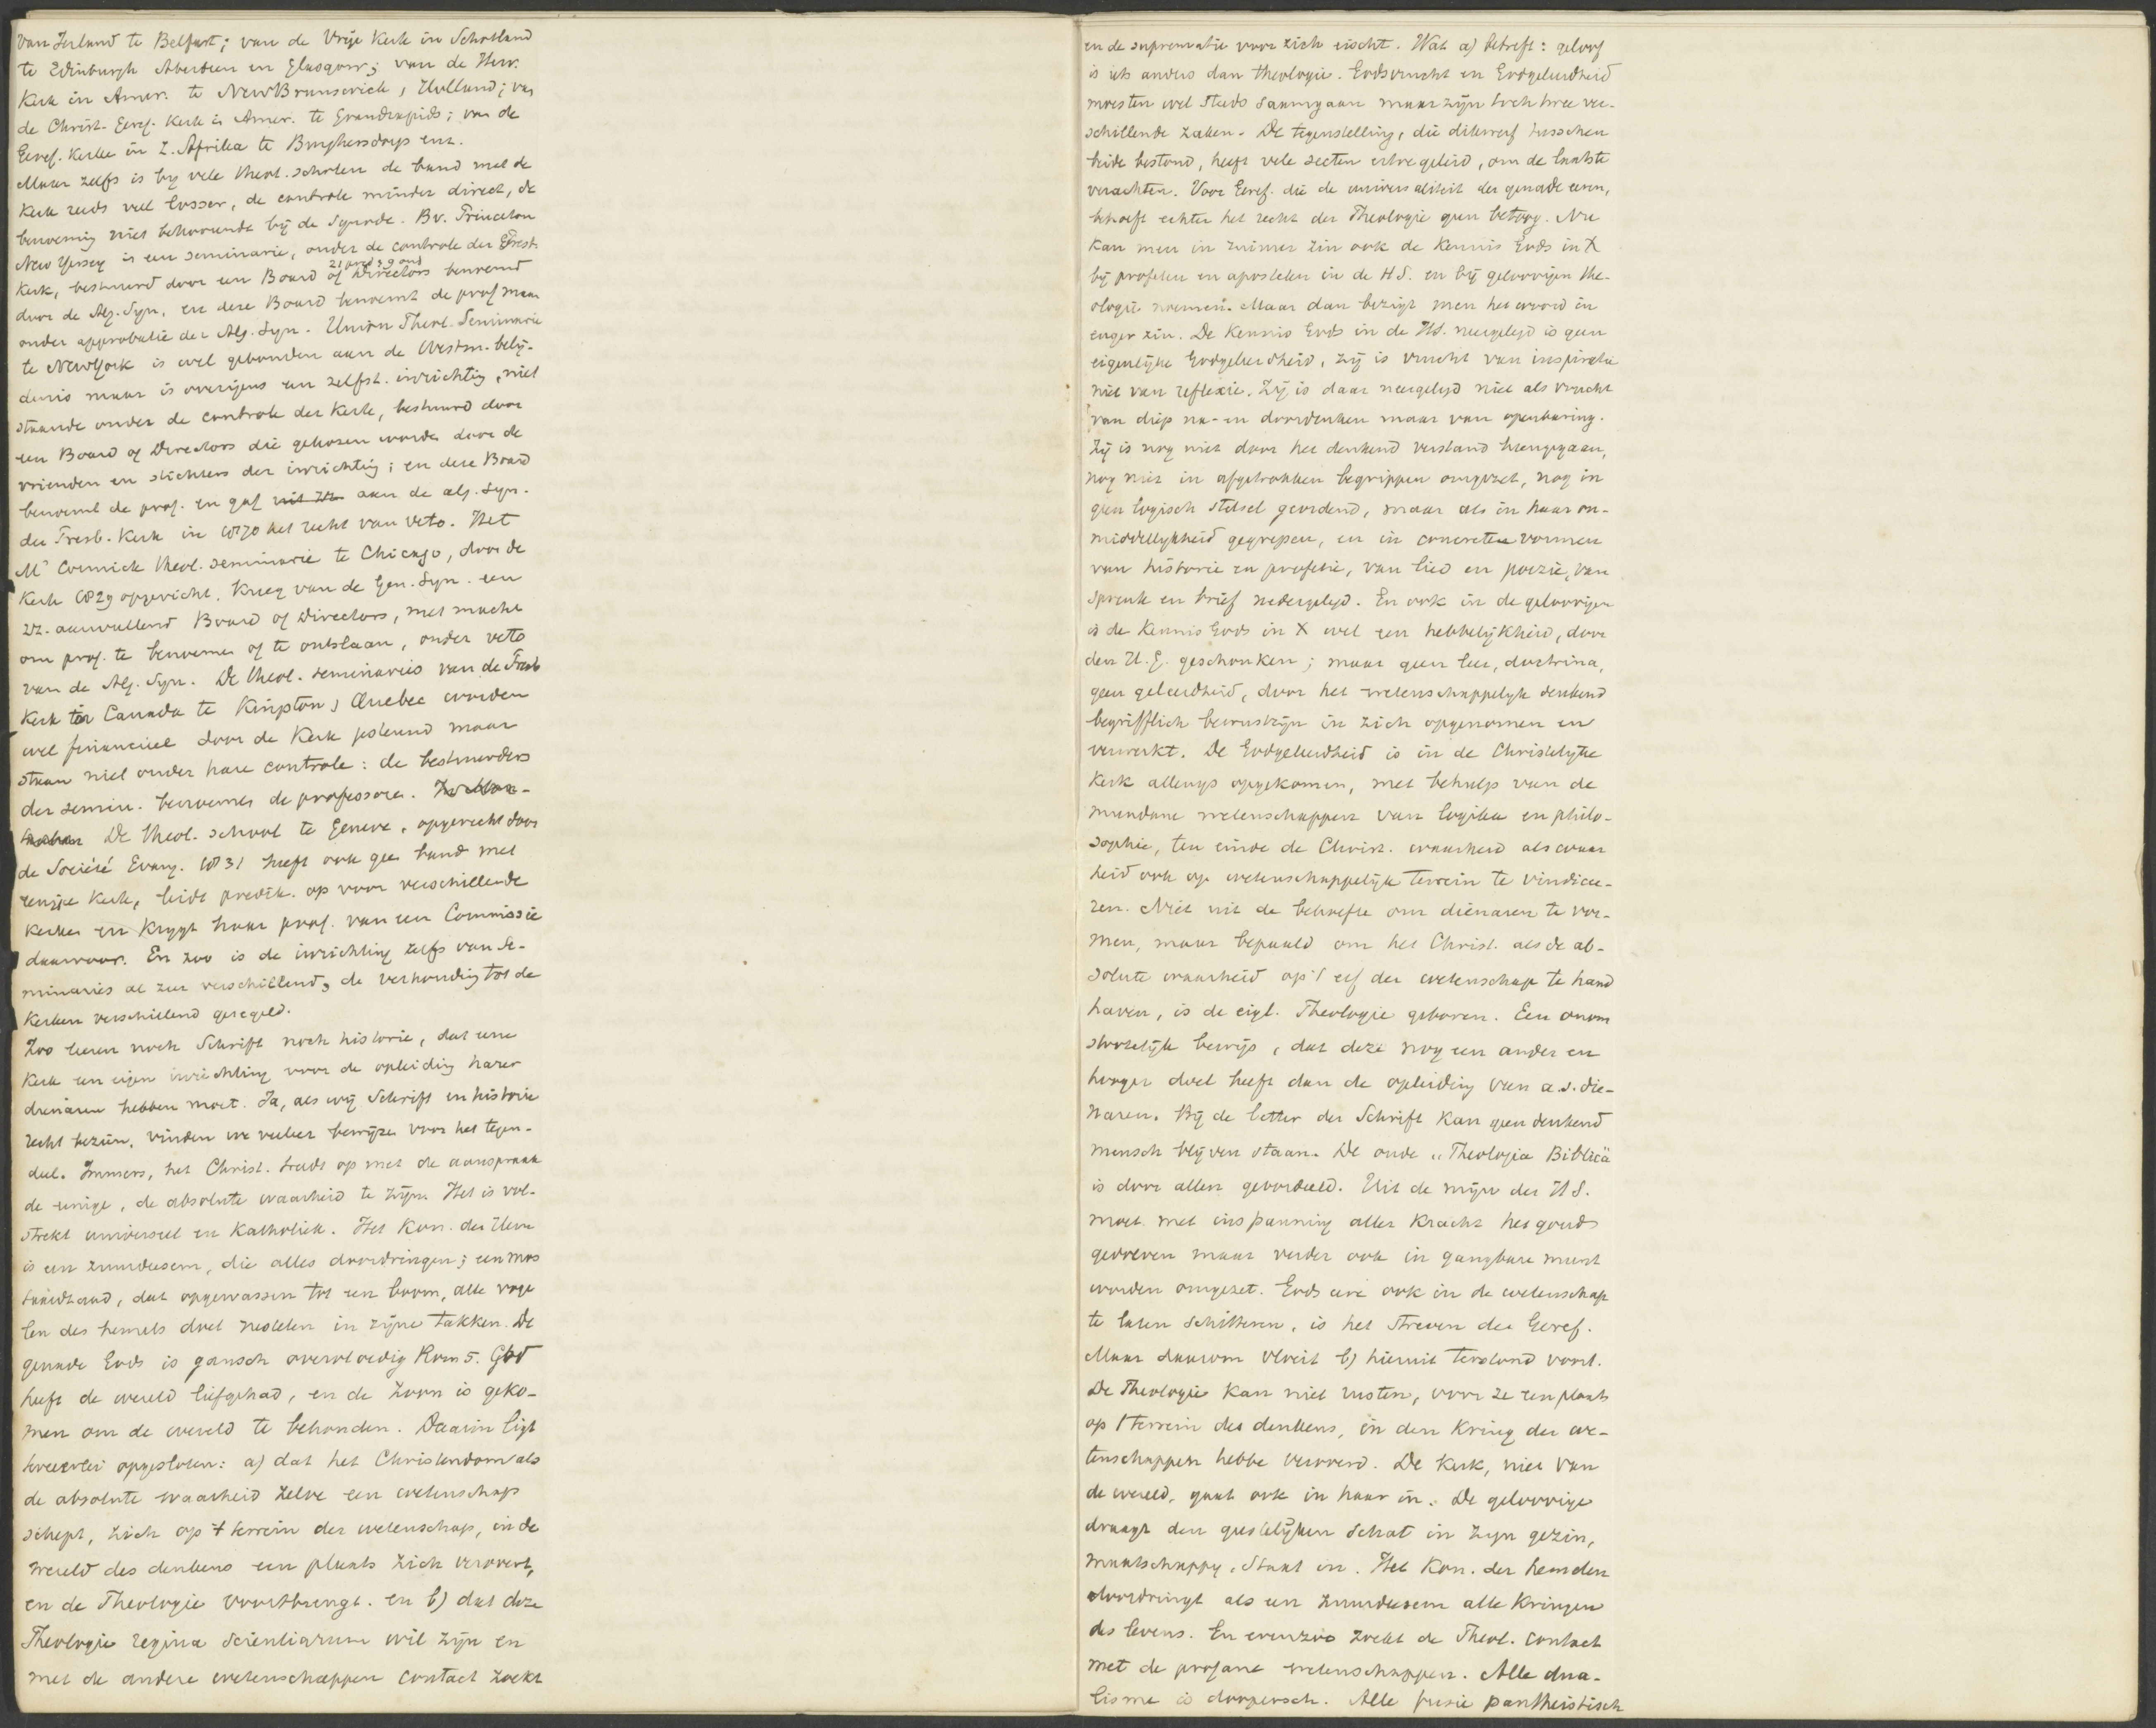 van Ierland te Belfast; van de Vrije Kerk in Schotland
te Edinburgh Aberdeen en Glasgow; van de Herv.
Kerk in Amer. te NewBrunswick, Holland; van
de Christ. Geref. Kerk in Amer. te Grandrapids; van de
Geref. Kerke in Z. Afrika te Burghersdorp enz.
Maar zelfs is by vele theol. scholen de band met de
Kerk reeds veel losser, de controle minder direct, de
benoeming niet behoorende bij de Synode. Bv. Princeton
New Yersey is een seminarie, onder de controle der Presb.
Kerk, bestuurd door een Board of Directors benoemd
21 pred & 9 oud
door de Alg. Syn. en deze Board benoemt de prof maar
onder approbatie der Alg. Syn. Union Theol. Seminarie
te NewYork is wel gebonden aan de Westm. belij-
denis maar is overigens een zelfst. inrichting, niet
staande onder de controle der Kerk, bestuurd door
een Board of Directors die gekozen worden door de
vrienden en stichters der inrichting; en deze Board
benoemt de prof. en gaf aan de alg. Syn.
der Presb. Kerk in 1870 het recht van veto. Het
Mc Cormick theol. seminarie te Chicago, door de
Kerk 1829 opgericht, kreeg van de Gen. Syn. een
zz. aanvullend Board of Directors, met macht
om prof. te benoemen of te ontslaan, onder veto
van de Alg. Syn. De theol. seminaries van de Presb
Kerk in Canada te Kingston, Quebec worden
wel financieel door de Kerk gesteund maar
staan niet onder hare controle: de bestuurders
der semin. benoemen de professoren.
De theol. school te Geneve, opgericht door
de Société Evang. 1831 heeft ook geen band met
eenige Kerk, leidt predik. op voor verschillende
Kerken en krygt haar prof. van een Commissie
daarvoor. En zoo is de inrichting zelfs van Se-
minaries al zeer verschillend, de verhouding tot de
Kerken verschillend geregeld.
Zoo leeren noch Schrift noch historie, dat eene
Kerk een eigen inrichting voor de opleiding harer
dienaren hebben moet. Ja, als wij Schrift en historie
recht bezien, vinden we veeleer bewijzen voor het tegen-
deel. Immers, het Christ. treedt op met de aanspraak
de eenige, de absolute waarheid te zijn. Het is vol-
strekt universeel en Katholiek. Het Kon. der Heme
is een zuurdeesem, die alles doordringen; een mos
taardzaad, dat opgewassen tot een boom, alle voge
len des hemels doet nestelen in zijne takken. De
genade Gods is gansch overvloedig Rom 5. God
heeft de wereld liefgehad, en de Zoon is geko-
men om de wereld te behouden. Daarin ligt
tweeerlei opgesloten: a) dat het Christendom als
de absolute waarheid zelve een wetenschap
schept, zich op 't terrein der wetenschap, in de
wereld des denkens een plaats zich verovert,
en de Theologie voortbrengt. en b) dat deze
Theologie regina scientiarum wil zijn en
met de andere wetenschappen contact zoekt
en de suprematie voor zich eischt. Wat a) betreft: geloof
is iets anders dan theologie. Godsvrucht en Godgeleerdheid
moesten wel steeds saamgaan maar zijn toch twee ver-
schillende zaken. De tegenstelling, die dikwerf tusschen
beide bestond, heeft vele secten ertoe geleid, om de laatste
verachten. Voor Geref. die de universaliteit der genade eeren,
behoeft echter het recht der Theologie geen betoog. Nu
kan men in ruimer zin ook de Kennis Gods in X
bij profeten en apostelen in de H S. en bij geloovigen the-
ologie noemen. Maar dan bezigt men het woord in
enger zin. De Kennis Gods in de HS. neergelegd is geen
eigenlijke Godgeleerdheid, zij is vrucht van inspiratie
niet van reflexie. Zij is daar neergelegd niet als vrucht
van diep na- en doordenken maar van openbaring.
Zij is nog niet door het denkend verstand heengegaan,
nog niet in afgetrokken begrippen omgezet, nog in
geen logisch stelsel geordend, maar als in haar on-
middellykheid gegrepen, en in concreten vormen
van historie en profetie, van lied en poezie, van
spreuk en brief nedergelegd. En ook in de geloovigen
is de Kennis Gods in X wel een hebbelijkheid, door
den H. G. geschonken; maar geen leer, doctrina,
geen geleerdheid, door het wetenschappelijk denkend
begrifflich bewustzijn in zich opgenomen en
verwerkt. De Godgeleerdheid is in de Christelyke
Kerk allengs opgekomen, met behulp van de
mundane wetenschappen van logika en philo-
sophie, ten einde de Christ. waarheid als waar
heid ook op wetenschappelijk terrein te vindicee-
ren. Niet uit de behoefte om dienaren te vor-
men, maar bepaald om het Christ. als de ab-
solute waarheid op 't erf der wetenschap te hand
haven, is de eigl. Theologie geboren. Een onom
stootelijk bewijs, dat deze nog een ander en
hooger doel heeft dan de opleiding van a.s. die-
naren. Bij de letter der Schrift kan geen denkend
mensch blijven staan. De oude „Theologia Biblica"
is door allen geoordeeld. Uit de mijn der H S.
moet met inspanning aller kracht het goud
gedreven maar verder ook in gangbare munt
worden omgezet. Gods eere ook in de wetenschap
te laten schitteren, is het streven der Geref.
Maar daarom vloeit b) hieruit terstond voort.
De Theologie kan niet rusten, voor ze een plaats
op 't terrein des denkens, in den Kring der we-
tenschappen hebbe veroverd. De Kerk, niet van
de wereld, gaat ook in haar in. De geloovige
draagt den geestelijken schat in zijn gezin,
maatschappy, Staat in. Het Kon. der hemelen
doordringt als een zuurdeesem alle Kringen
des levens. En evenzoo zoekt de Theol. contact
met de profane wetenschappen. Alle dua-
lisme is doopersch. Alle fusie pantheistisch